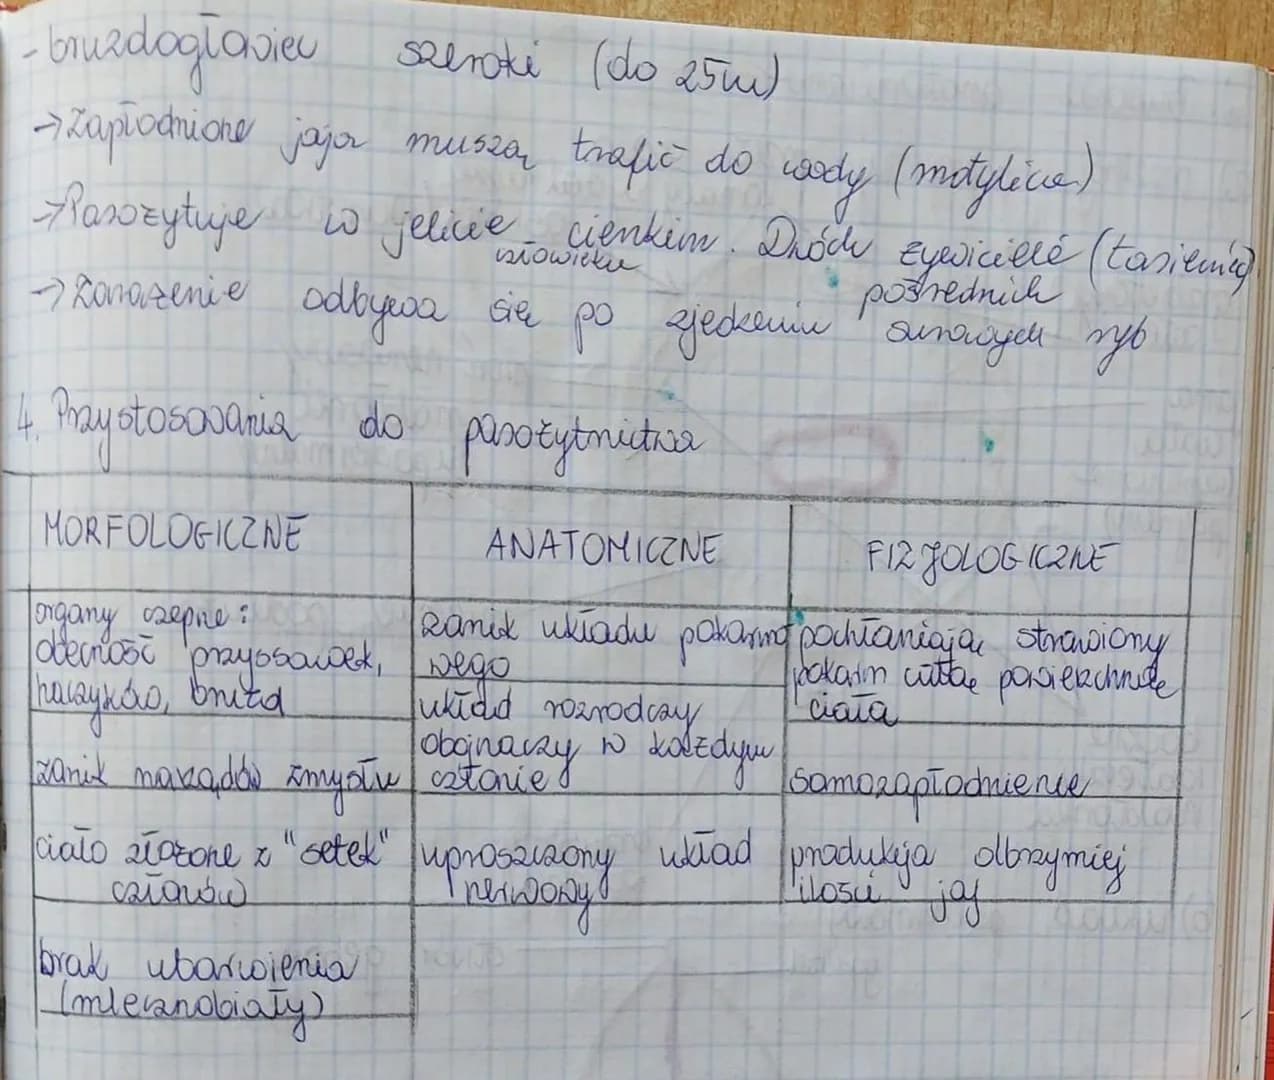 - bruzdogłowiec szeroki (do 25m)
→ Zapłodnione jaja muszą trafić do wody (motylica)
→ Pasożytuje w jelicie cienkim. Dwóch żywicieli (tasiemiec)
człowieka pośrednich
→ Zarażenie odbywa się po zjedzeniu surowych ryb
4. Przystosowania do pasożytnictwa
MORFOLOGICZNE ANATOMICZNE FIZJOLOGICZNE
organy czepne:
obecność przyssawek,
haczyków, bruzd
zanik narządów zmysłu
ciało złożone z "setek"
członów
brak ubarwienia
(mlecznobiały)
zanik układu pokarmo
wego
układ rozrodczy
obojnaczy w każdym
członie
uproszczony układ
nerwowy
pochłaniają strawiony
pokarm całą powierzchnią
ciała
samozapłodnienie
produkcja olbrzymiej
ilości jaj